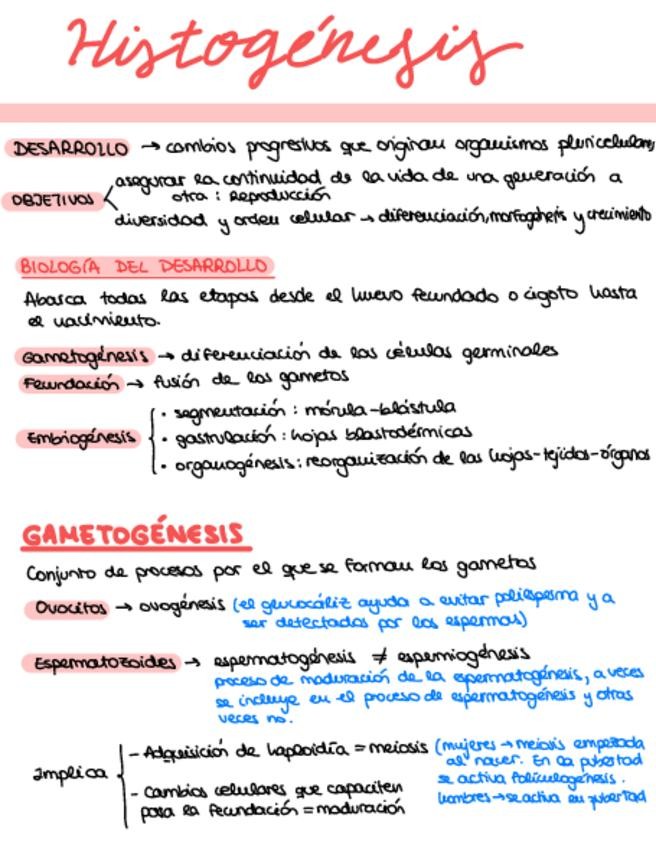 Histogénesis
DESARROLLO → cambios progresivos que originan organismos pluricelulares
OBJETIVOS < asegurar la continuidad de la vida de una generación a
otra : Reproducción
diversidad y orden celular → diferenciación, morfogénesis y crecimiento
BIOLOGÍA DEL DESARROLLO
Abarca todas las etapas desde el huevo fecundado o cigoto hasta
el nacimiento.
Gametogénesis → diferenciación de las células germinales
Fecundación → fusión de los gametos
Embriogénesis
· segmentación : mórula-blástula
· gastrulación : hojas blastodérmicas
· organogénesis : reorganización de las hojas-tejidos-órganos
GAMETOGÉNESIS
Conjunto de procesos por el que se forman los gametos
Ovocitos → ovogénesis (el glucocáliz ayuda a evitar poliespermia y a
ser detectados por los espermas)
Espermatozoides → espermatogénesis ≠ espermiogénesis
proceso de maduración de la espermatogénesis, a veces
se incluye en el proceso de espermatogénesis y otras
veces no.
Implica
- Adquisición de haploidía = meiosis (mujeres → meiosis empezada
al nacer. En la pubertad
se activa foliculogénesis.
hombres → se activa en pubertad
- Cambios celulares que capaciten
para la fecundación = maduración